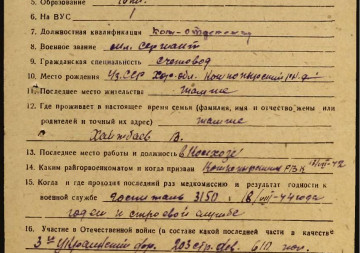 5. Образование
6. На ВУС 1
7. Должностная квалификация ком. отделения
8. Военное звание мл. сержант
9. Гражданская специальность счетовод
10. Место рождения Уз.ССР Хор. обл.
11. Последнее место жительства там же
12. Где проживает в настоящее время семья (фамилия, имя и отчество жены или
родителей и точный их адрес) там же
В.
13. Последнее место работы и должность в колхозе
14. Каким райгорвоенкоматом и когда призван РВК
15. Когда и где проходил последний раз медкомиссию и результат годности к
военной службе госпиталь 3150 44 года
годен к строевой службе
16. Участие в Отечественной войне (в составе какой последней части и в качестве
3й Украинский фр. 203 стр. див. 610